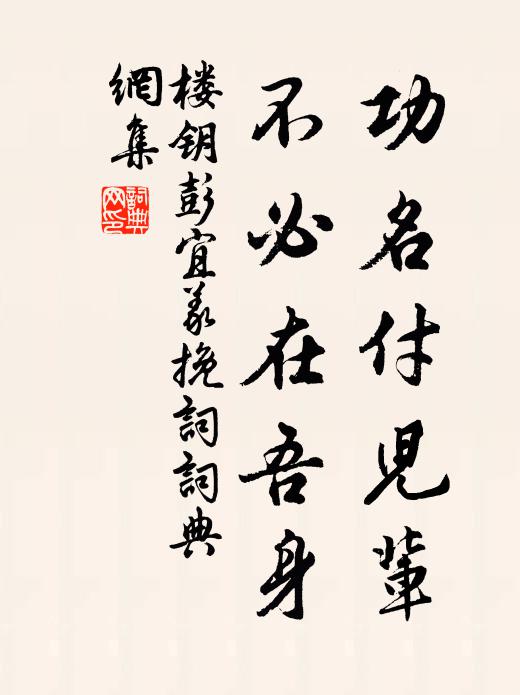 功名付兒輩
不必在吾身
楼钥彭宜义挽詞詞典
網集
詞典网印